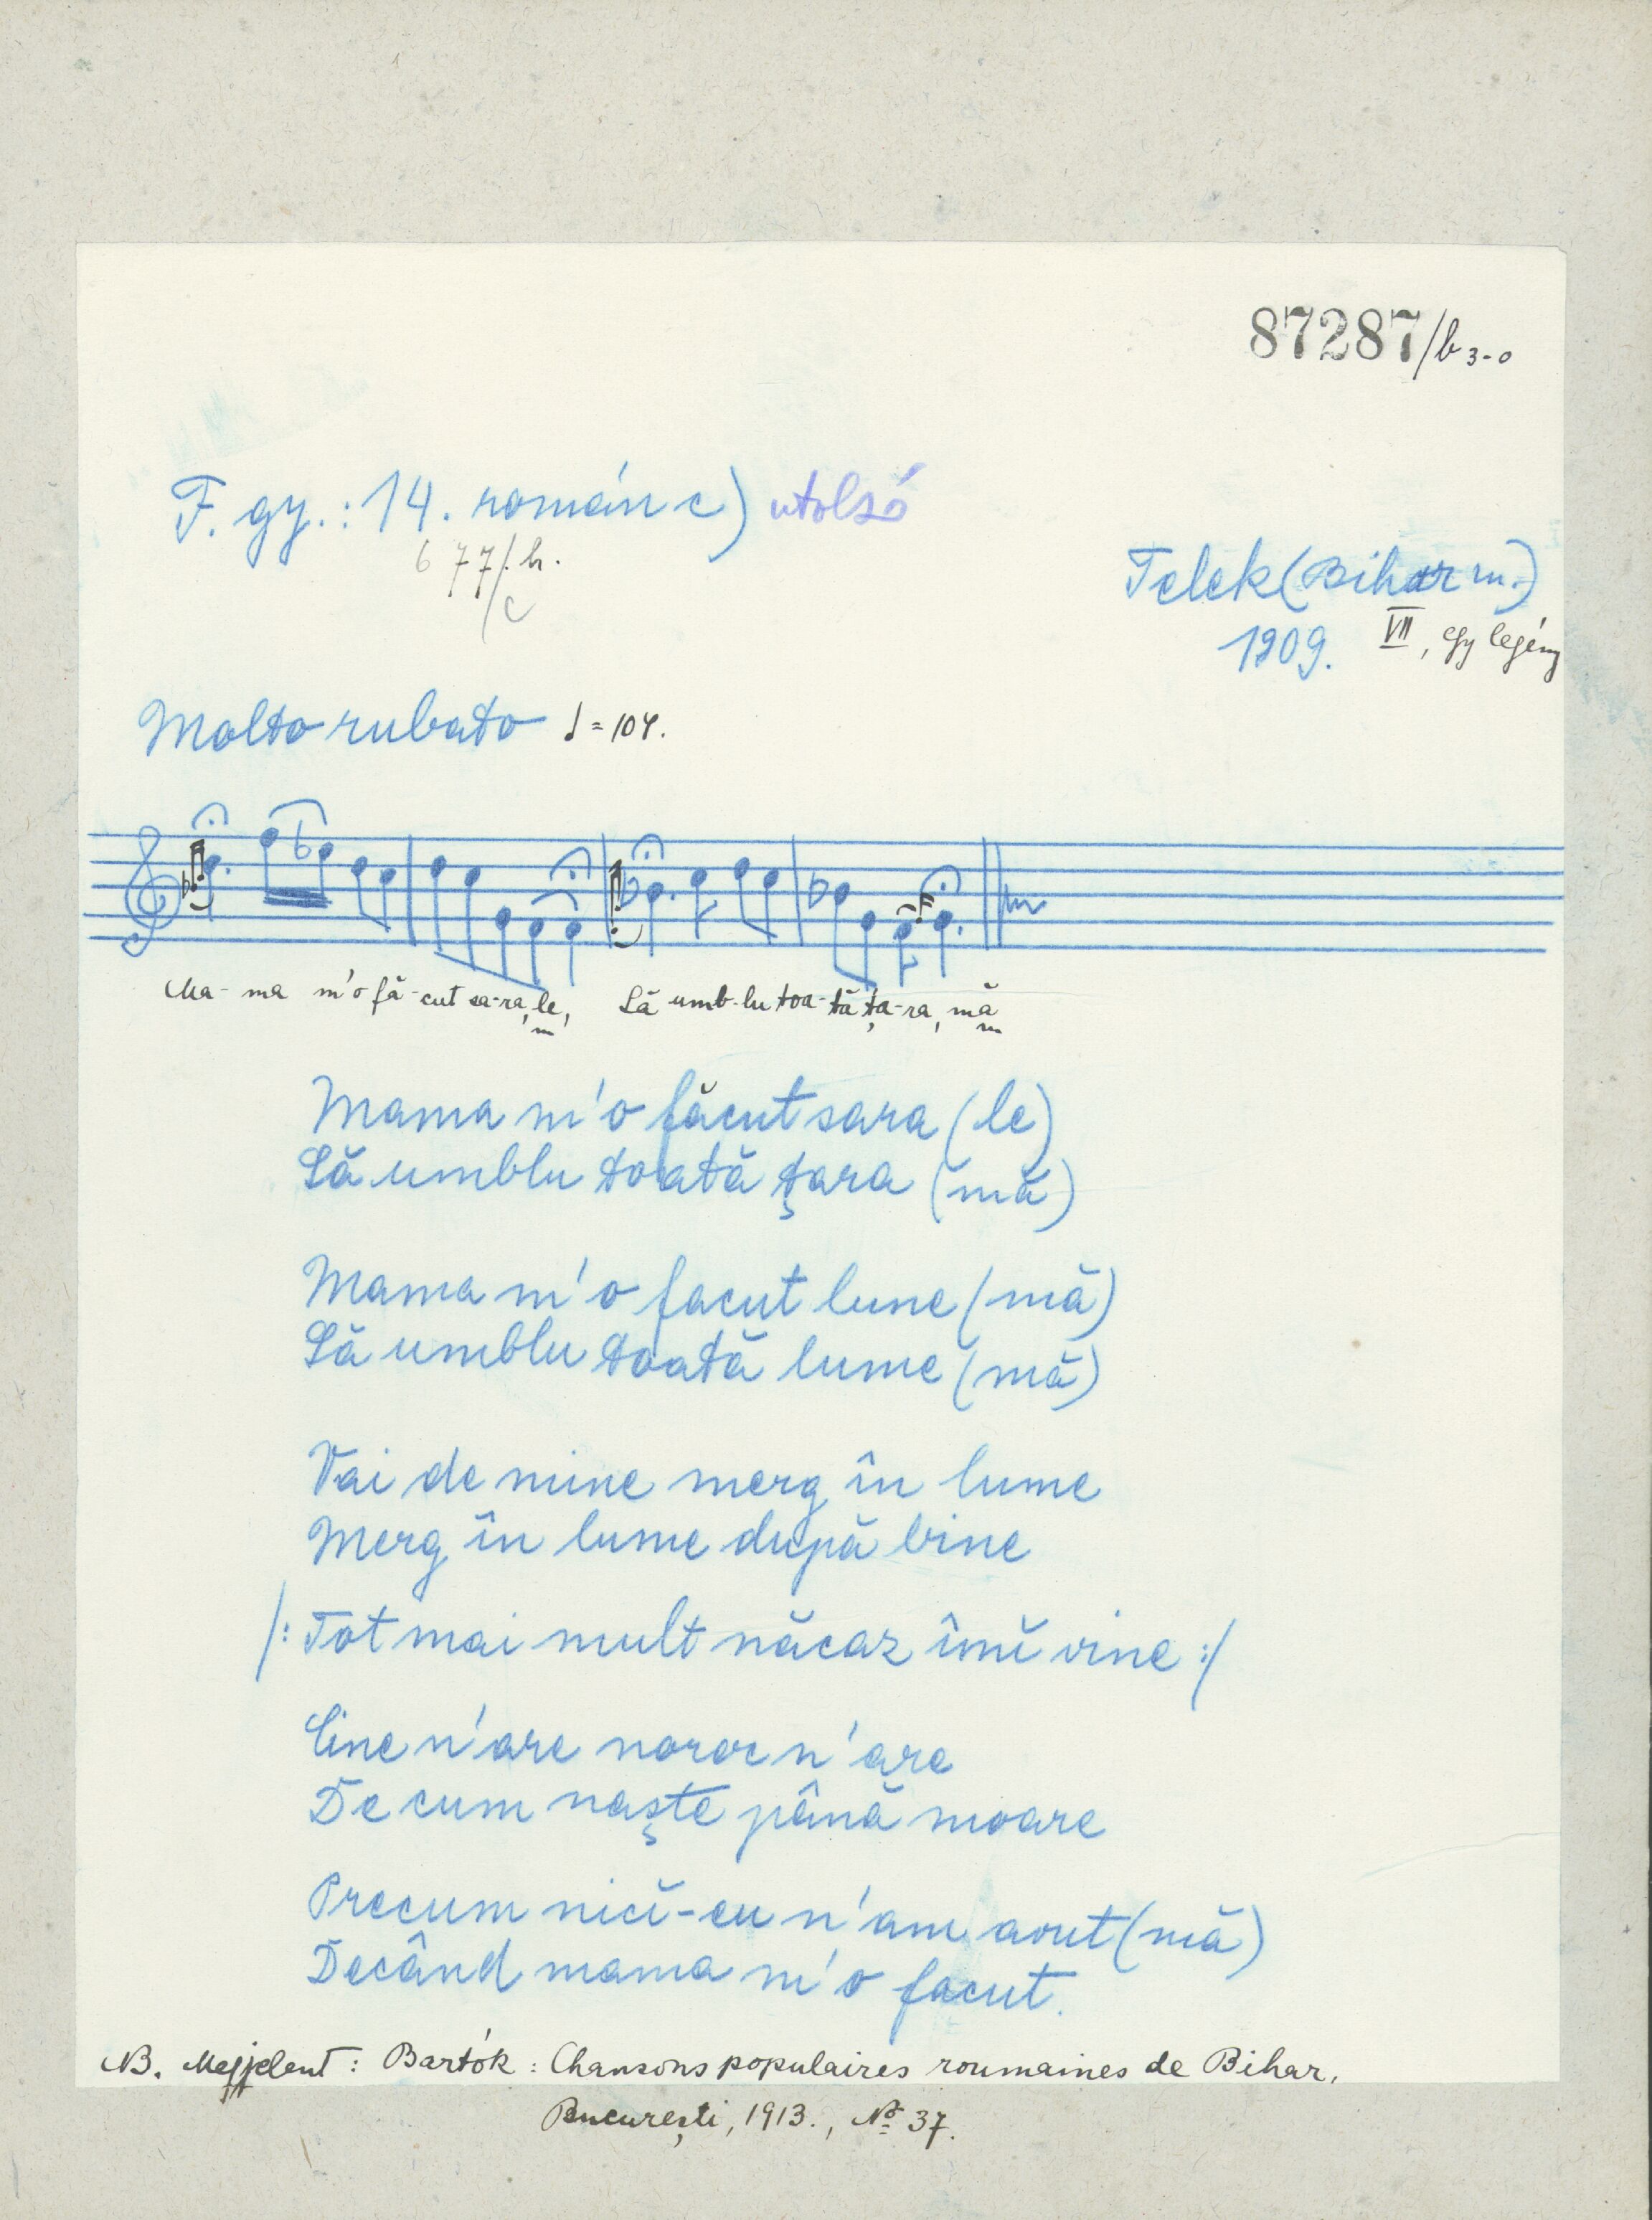 87287/b 3-0
F. gy.: 14. román c) utolsó
677/.b.
/c
Telek (Bihar m.)
1909. VII, egy legény
Molto rubato ♩=104.
Ma-ma m'o fă-cut sa-ra, le, Să umb-lu toa-tă ța-ra, mă
Mama m'o făcut sara (le)
Să umblu toată țara (mă)
Mama m'o facut lune (mă)
Să umblu toată lume (mă)
Vai de mine merg în lume
Merg în lume după bine
/: Tot mai mult năcaz îmĭ vine :/
Cine n'are noroc n'are
De cum naște până moare
Precum nicĭ-eu n'am avut (mă)
Decând mama m'o facut.
NB. Megjelent: Bartók: Chansons populaires roumaines de Bihar,
București, 1913., No 37.